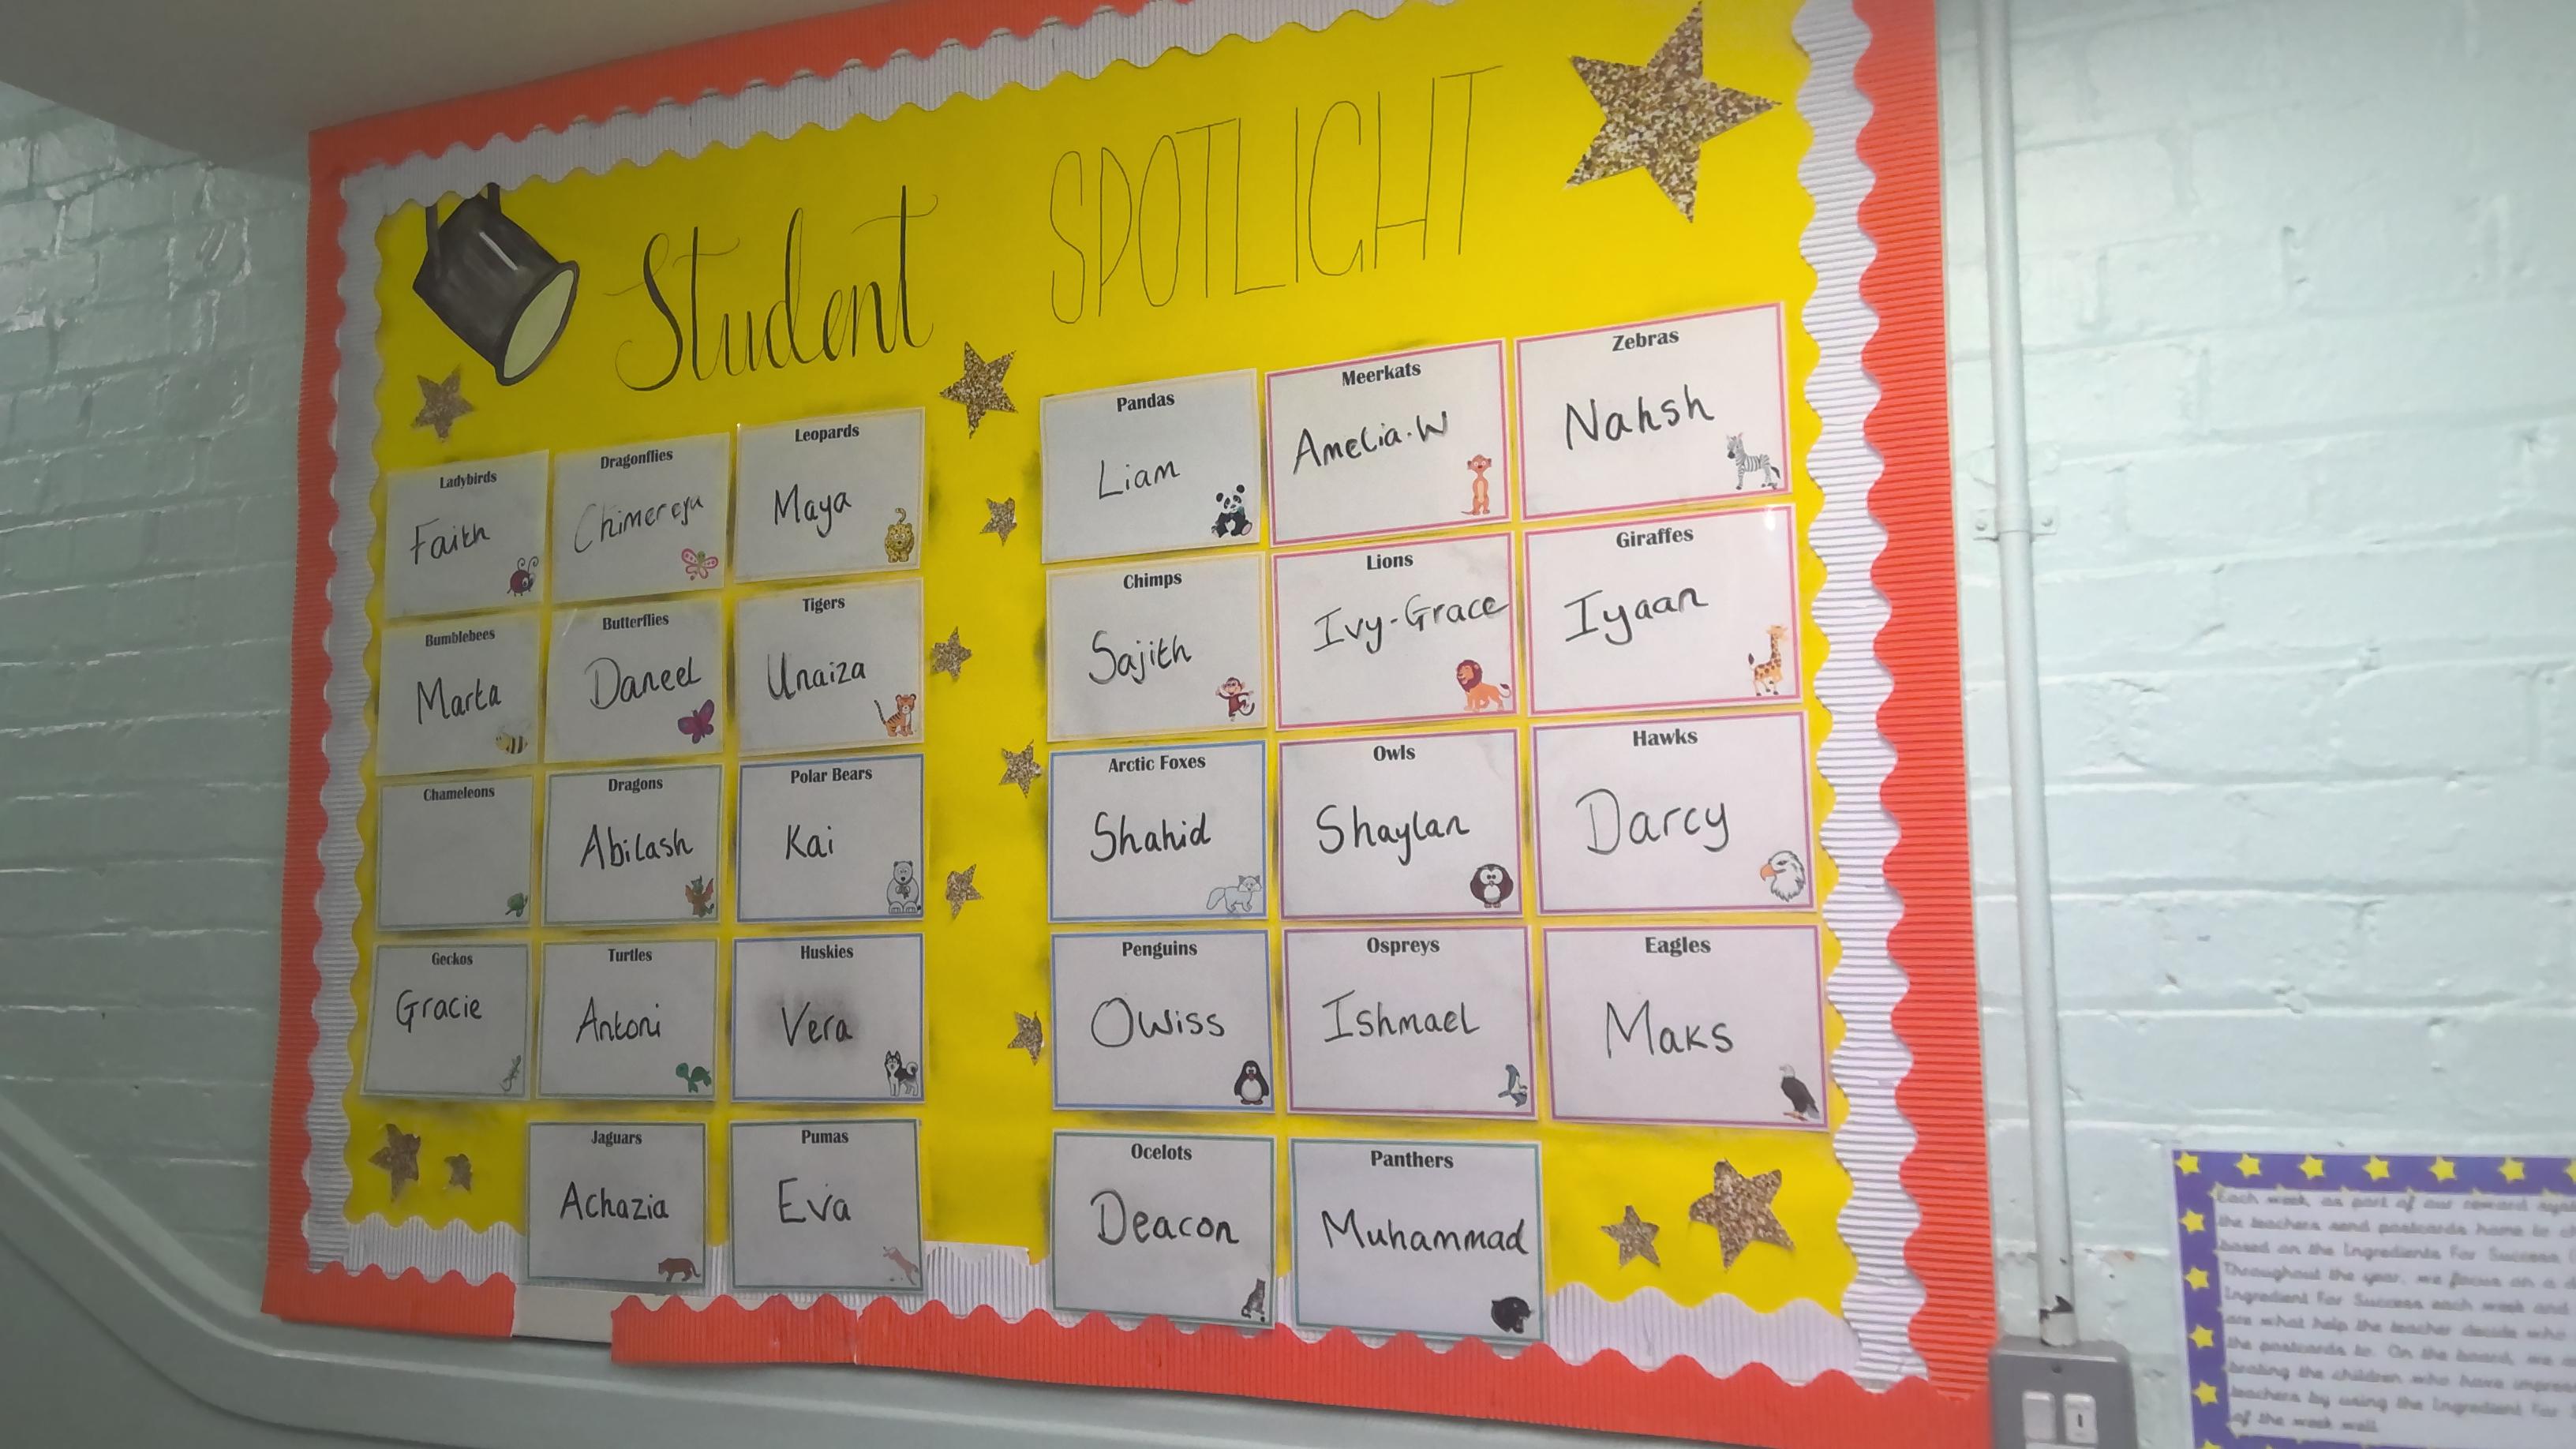 Student SPOTLIGHT
Ladybirds
Faith
Dragonflies
Leopards
Maya
Bumblebees
Marta
Butterflies
Daneel
Tigers
Unaiza
Chameleons
Dragons
Abilash
Polar Bears
Kai
Geckos
Gracie
Turtles
Antoni
Huskies
Vera
Jaguars
Achazia
Pumas
Eva
Pandas
Liam
Meerkats
Amelia.W
Zebras
Nahsh
Chimps
Sajith
Lions
Ivy-Grace
Giraffes
Iyaan
Arctic Foxes
Shahid
Owls
Shaylan
Hawks
Darcy
Penguins
Owiss
Ospreys
Ishmael
Eagles
Maks
Ocelots
Deacon
Panthers
Muhammad
Each week, as part of our reward
the teachers send postcards home to
based on the Ingredients For Success
Throughout the year, we focus on a
Ingredient For Success each week and
are what help the teacher decide who
the postcards to. On the board, we
the children who have
teachers by using the Ingredient For
of the week well.